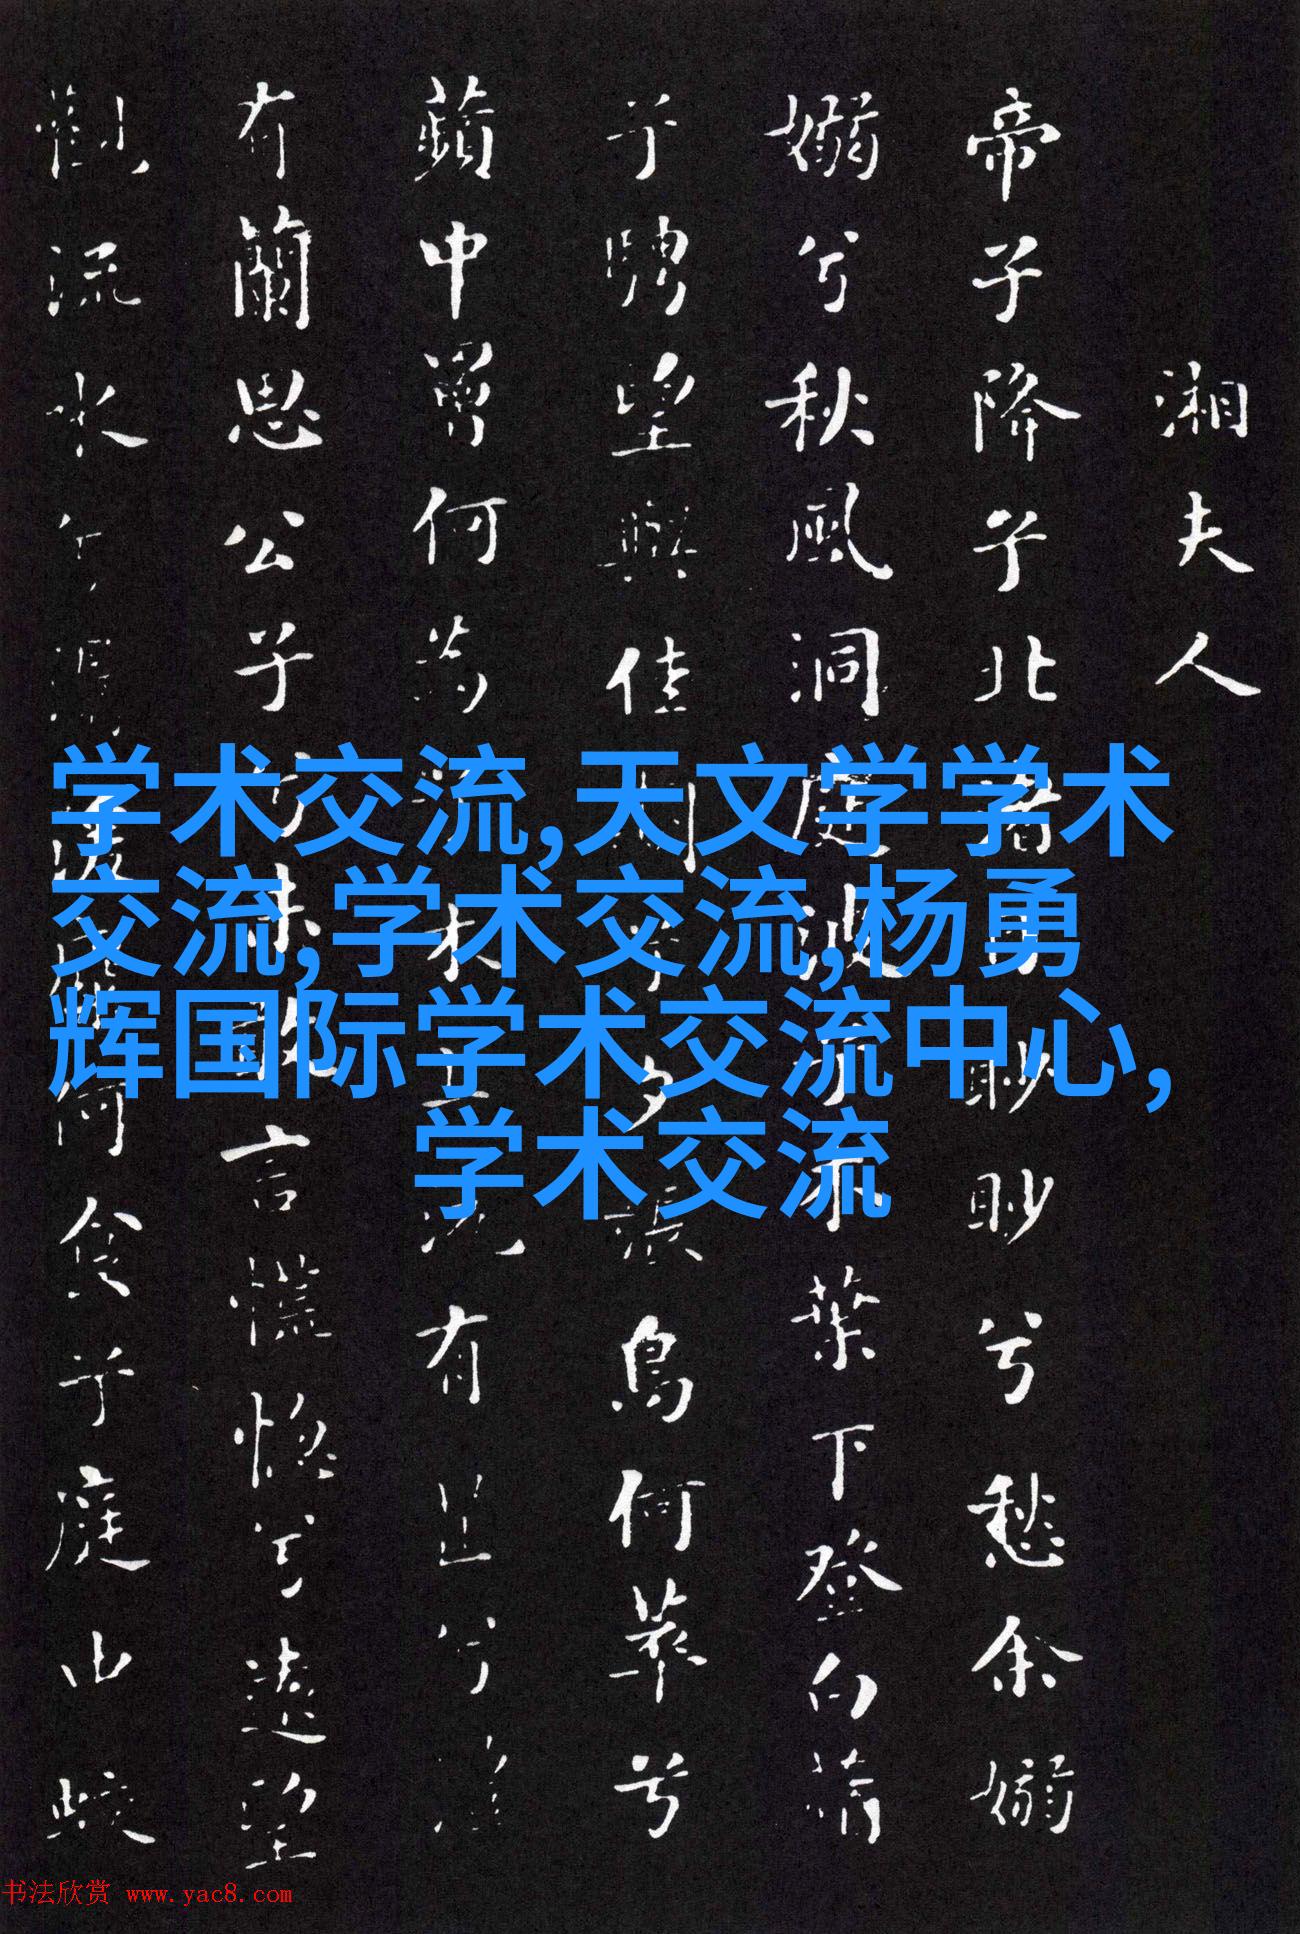 湘夫人
帝子降兮北渚眇眇兮愁余嫋
嫋兮秋風洞庭波兮木葉下登白
兮騁望與佳期兮夕張鳥何萃兮
蘋中罾何為兮木上沅有芷兮
有蘭思公子兮未敢言慌惚兮遠望
觀流水兮潺湲麋何食兮庭中蛟
学术交流,天文学学术
交流,学术交流,杨勇
辉国际学术交流中心,
学术交流
书法欣赏 www.yac8.com